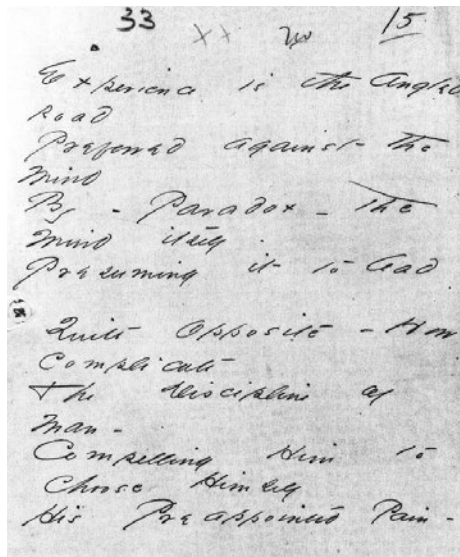 33 x x 15
Experience is the Angled
Road
Preferred against the
Mind
By - Paradox - the
Mind itself -
Presuming it to lead
Quite Opposite - How
Complicate
The Discipline of
Man -
Compelling Him to
Choose Himself
His Preappointed Pain -